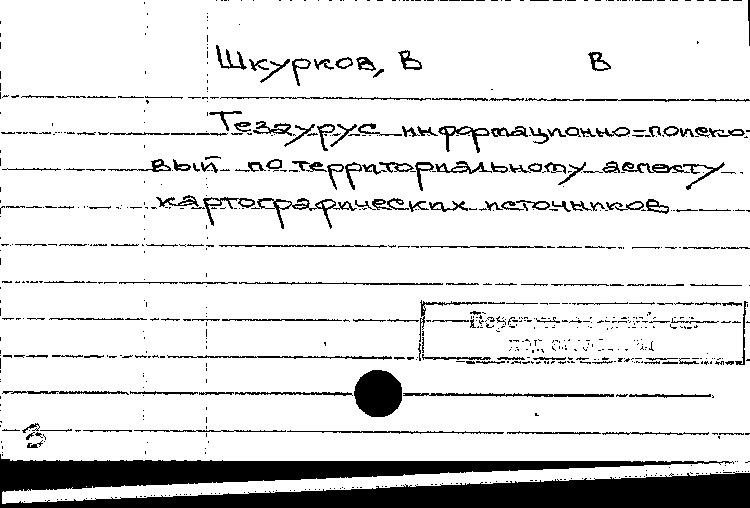 Шкурков, В В
Тезаурус информационно=поиско-
вый по территориальному аспекту
картографических источников
под
3